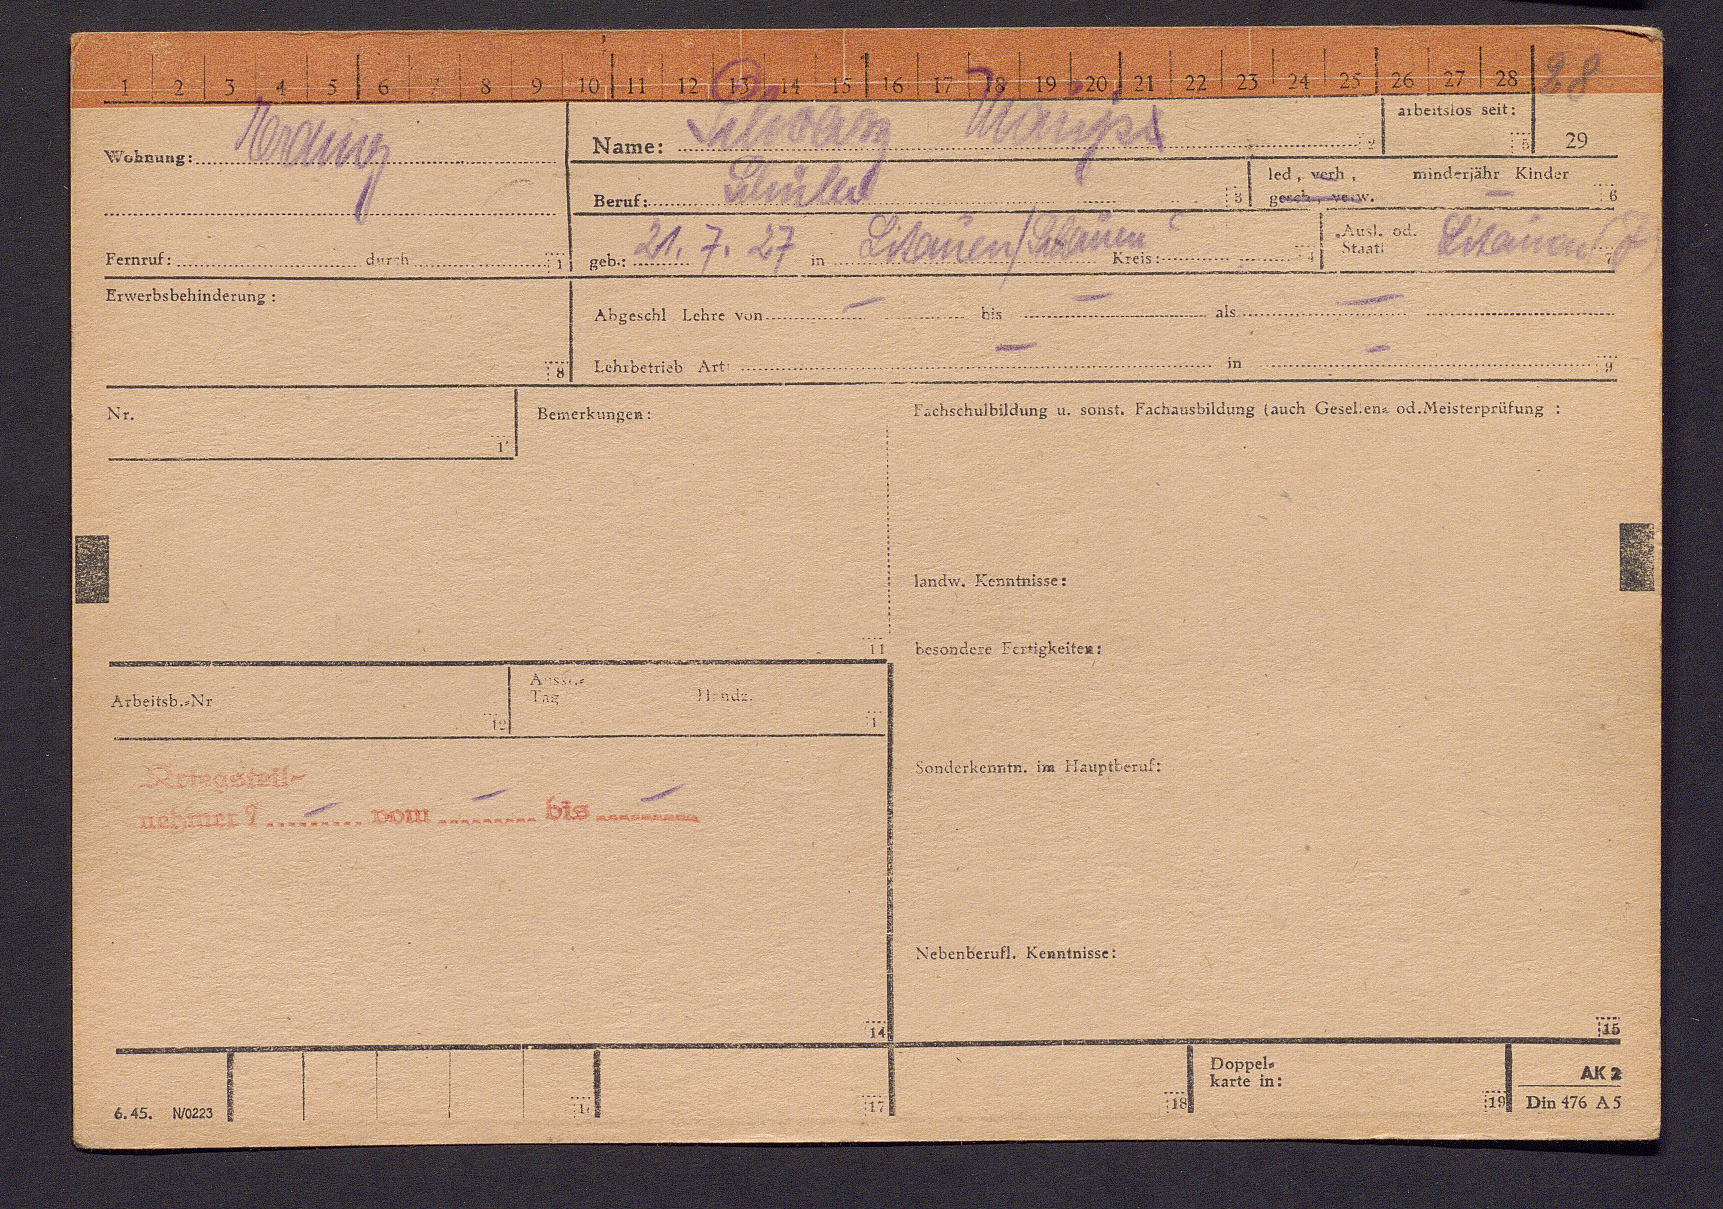 1 2 3 4 5 6 7 8 9 10 11 12 13 14 15 16 17 18 19 20 21 22 23 24 25 26 27 28 28
arbeitslos seit:
Wohnung: Erding
Name: 2 5 29
led, verh, minderjähr Kinder
Beruf: Schüler 3 gesch, verw. — 6
Fernruf: durch 1
geb.: 21. 7. 27 in Litauen/ Kreis: 4
„Ausl. od. Staatl Litauen 7
Erwerbsbehinderung: 8
Abgeschl Lehre von — bis — als —
Lehrbetrieb Art: — in — 9
Nr. 1
Bemerkungen: 11
Fachschulbildung u. sonst. Fachausbildung (auch Gesellen= od.Meisterprüfung :
landw. Kenntnisse:
besondere Fertigkeiten:
Arbeitsb.=Nr 12
Tag Handz. 1
Kriegsteil-
nehmer? — vom — bis —
Sonderkenntn. im Hauptberuf:
Nebenberufl. Kenntnisse:
14 15
6.45. N/0223 17 18
Doppel=
karte in: 19
AK 2
Din 476 A5